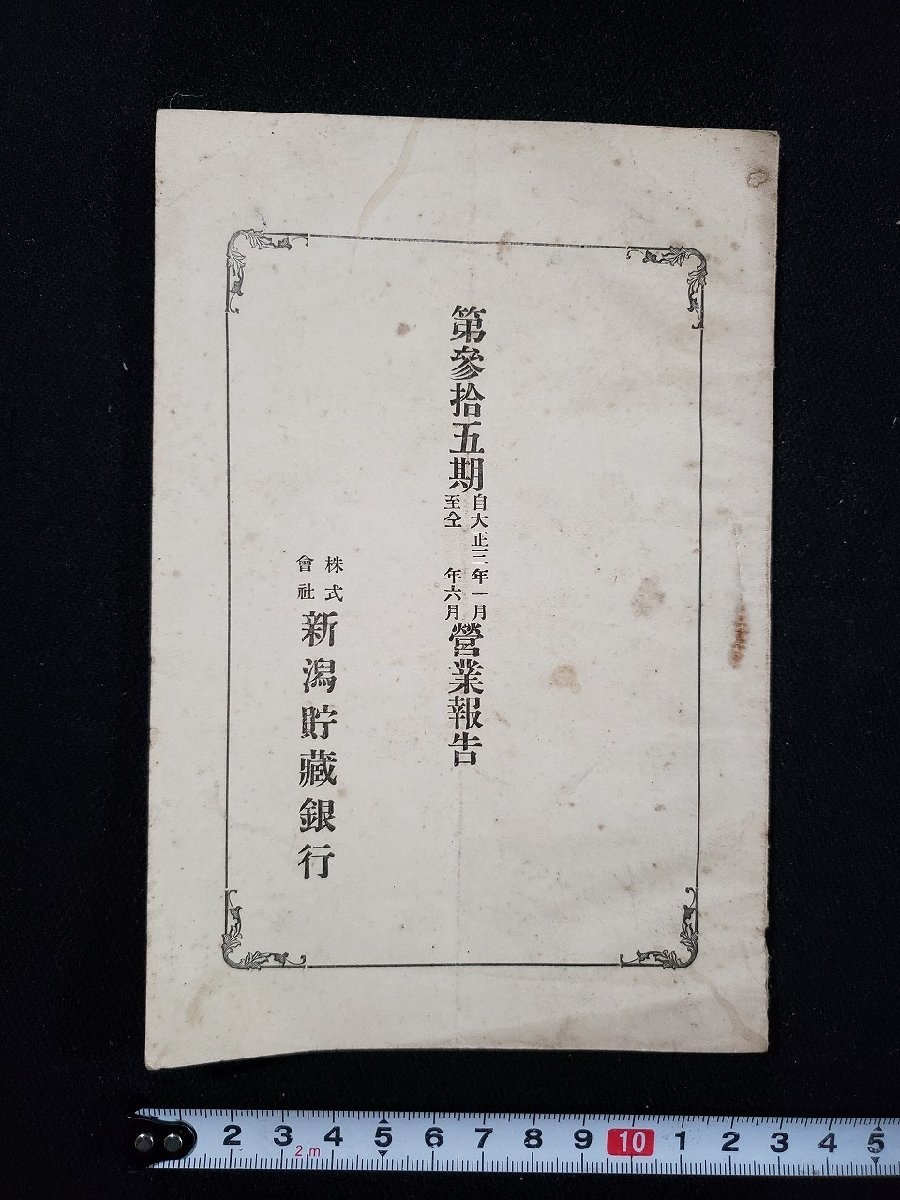 第參拾五期
自大正三年一月
至仝　年六月
營業報告
株式
會社
新潟貯藏銀行
2 3 4 5 6 7 8 9 10 1 2 3 4 5
2m